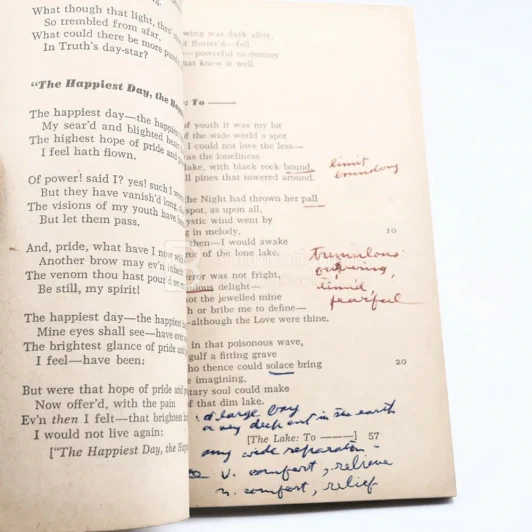 What though that light, thro'
So trembled from afar,
What could there be more purely
In Truth's day-star?
"The Happiest Day, the Happ
The happiest day—the happiest
My sear'd and blighted heart
The highest hope of pride and
I feel hath flown.
Of power! said I? yes! such I
But they have vanish'd long,
The visions of my youth have been
But let them pass.
And, pride, what have I now with
Another brow may ev'n inherit
The venom thou hast pour'd on
Be still, my spirit!
The happiest day—the happiest
Mine eyes shall see—have ever
The brightest glance of pride and
I feel—have been:
But were that hope of pride and
Now offer'd, with the pain
Ev'n then I felt—that brightest
I would not live again:
["The Happiest Day, the Happ
wing was dark alloy,
flutter'd—fell
—powerful to destroy
that knew it well.
: To ———
of youth it was my lot
of the wide world a spot
I could not love the less—
was the loneliness
lake, with black rock bound, limit
boundary
ll pines that towered around.
the Night had thrown her pall
spot, as upon all,
ystic wind went by 10
in melody,
then—I would awake
rror of the lone lake.
tremulous
quivering,
timid,
fearful
error was not fright,
ulous delight—
not the jewelled mine
h or bribe me to define—
—although the Love were thine.
in that poisonous wave,
gulf a fitting grave
ho thence could solace bring 20
e imagining,
tary soul could make
f that dim lake.
a large bay
or any deep ent in the earth
[The Lake: To ———] 57
any wide separation
v. comfort, relieve
n. comfort, relief